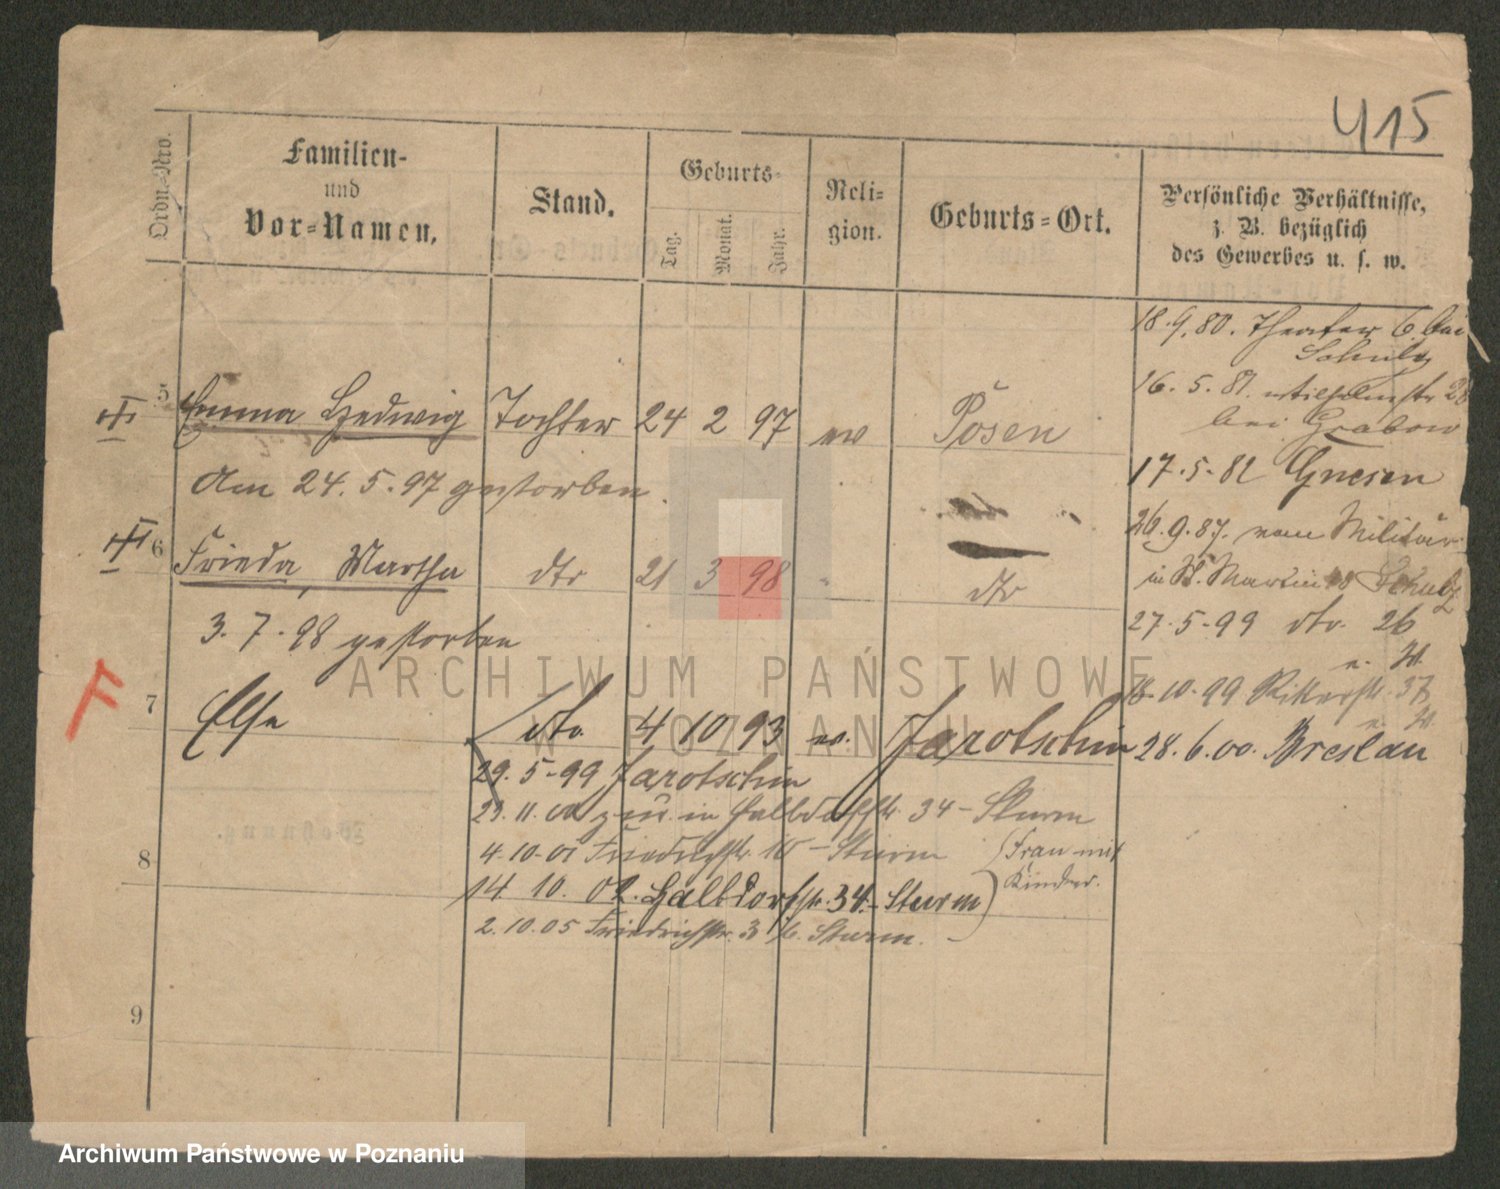 415
Ordn.-Nro.
Familien-
und
Vor-Namen.
Stand.
Geburts-
Tag.
Monat.
Jahr.
Reli-
gion.
Geburts-Ort.
Persönliche Verhältnisse,
z. B. bezüglich
des Gewerbes u. s. w.
18.9.80. Theater 6. bei
Schulz
16.5.81. Wilhelmstr 28
bei Grabow
17.5.82 Gnesen
26.9.87. vom Militär
in St. Martin Schulz
27.5.99 dto. 26
18.10.99 Ritterstr. 37
28.6.00. Breslau
5 Emma Hedwig Tochter 24 2 97 ev Posen
Am 24.5.97 gestorben.
6 Frieda, Martha dto 21 3 98 " dto
3.7.98 gestorben
F
7 Else dto 4 10 93 ev. Jarotschin
29.5.99 Jarotschin
29.11.00 zu in Halbdorfstr. 34 - Sturm
8 4.10.01 Friedrichstr. 10 - Sturm (Frau mit
Kinder.
14 10. 02. Halbdorfstr. 34. - Sturm)
2.10.05 Friedrichstr. 3 b. Sturm.
9
ARCHIWUM PAŃSTWOWE
W POZNANIU
Archiwum Państwowe w Poznaniu